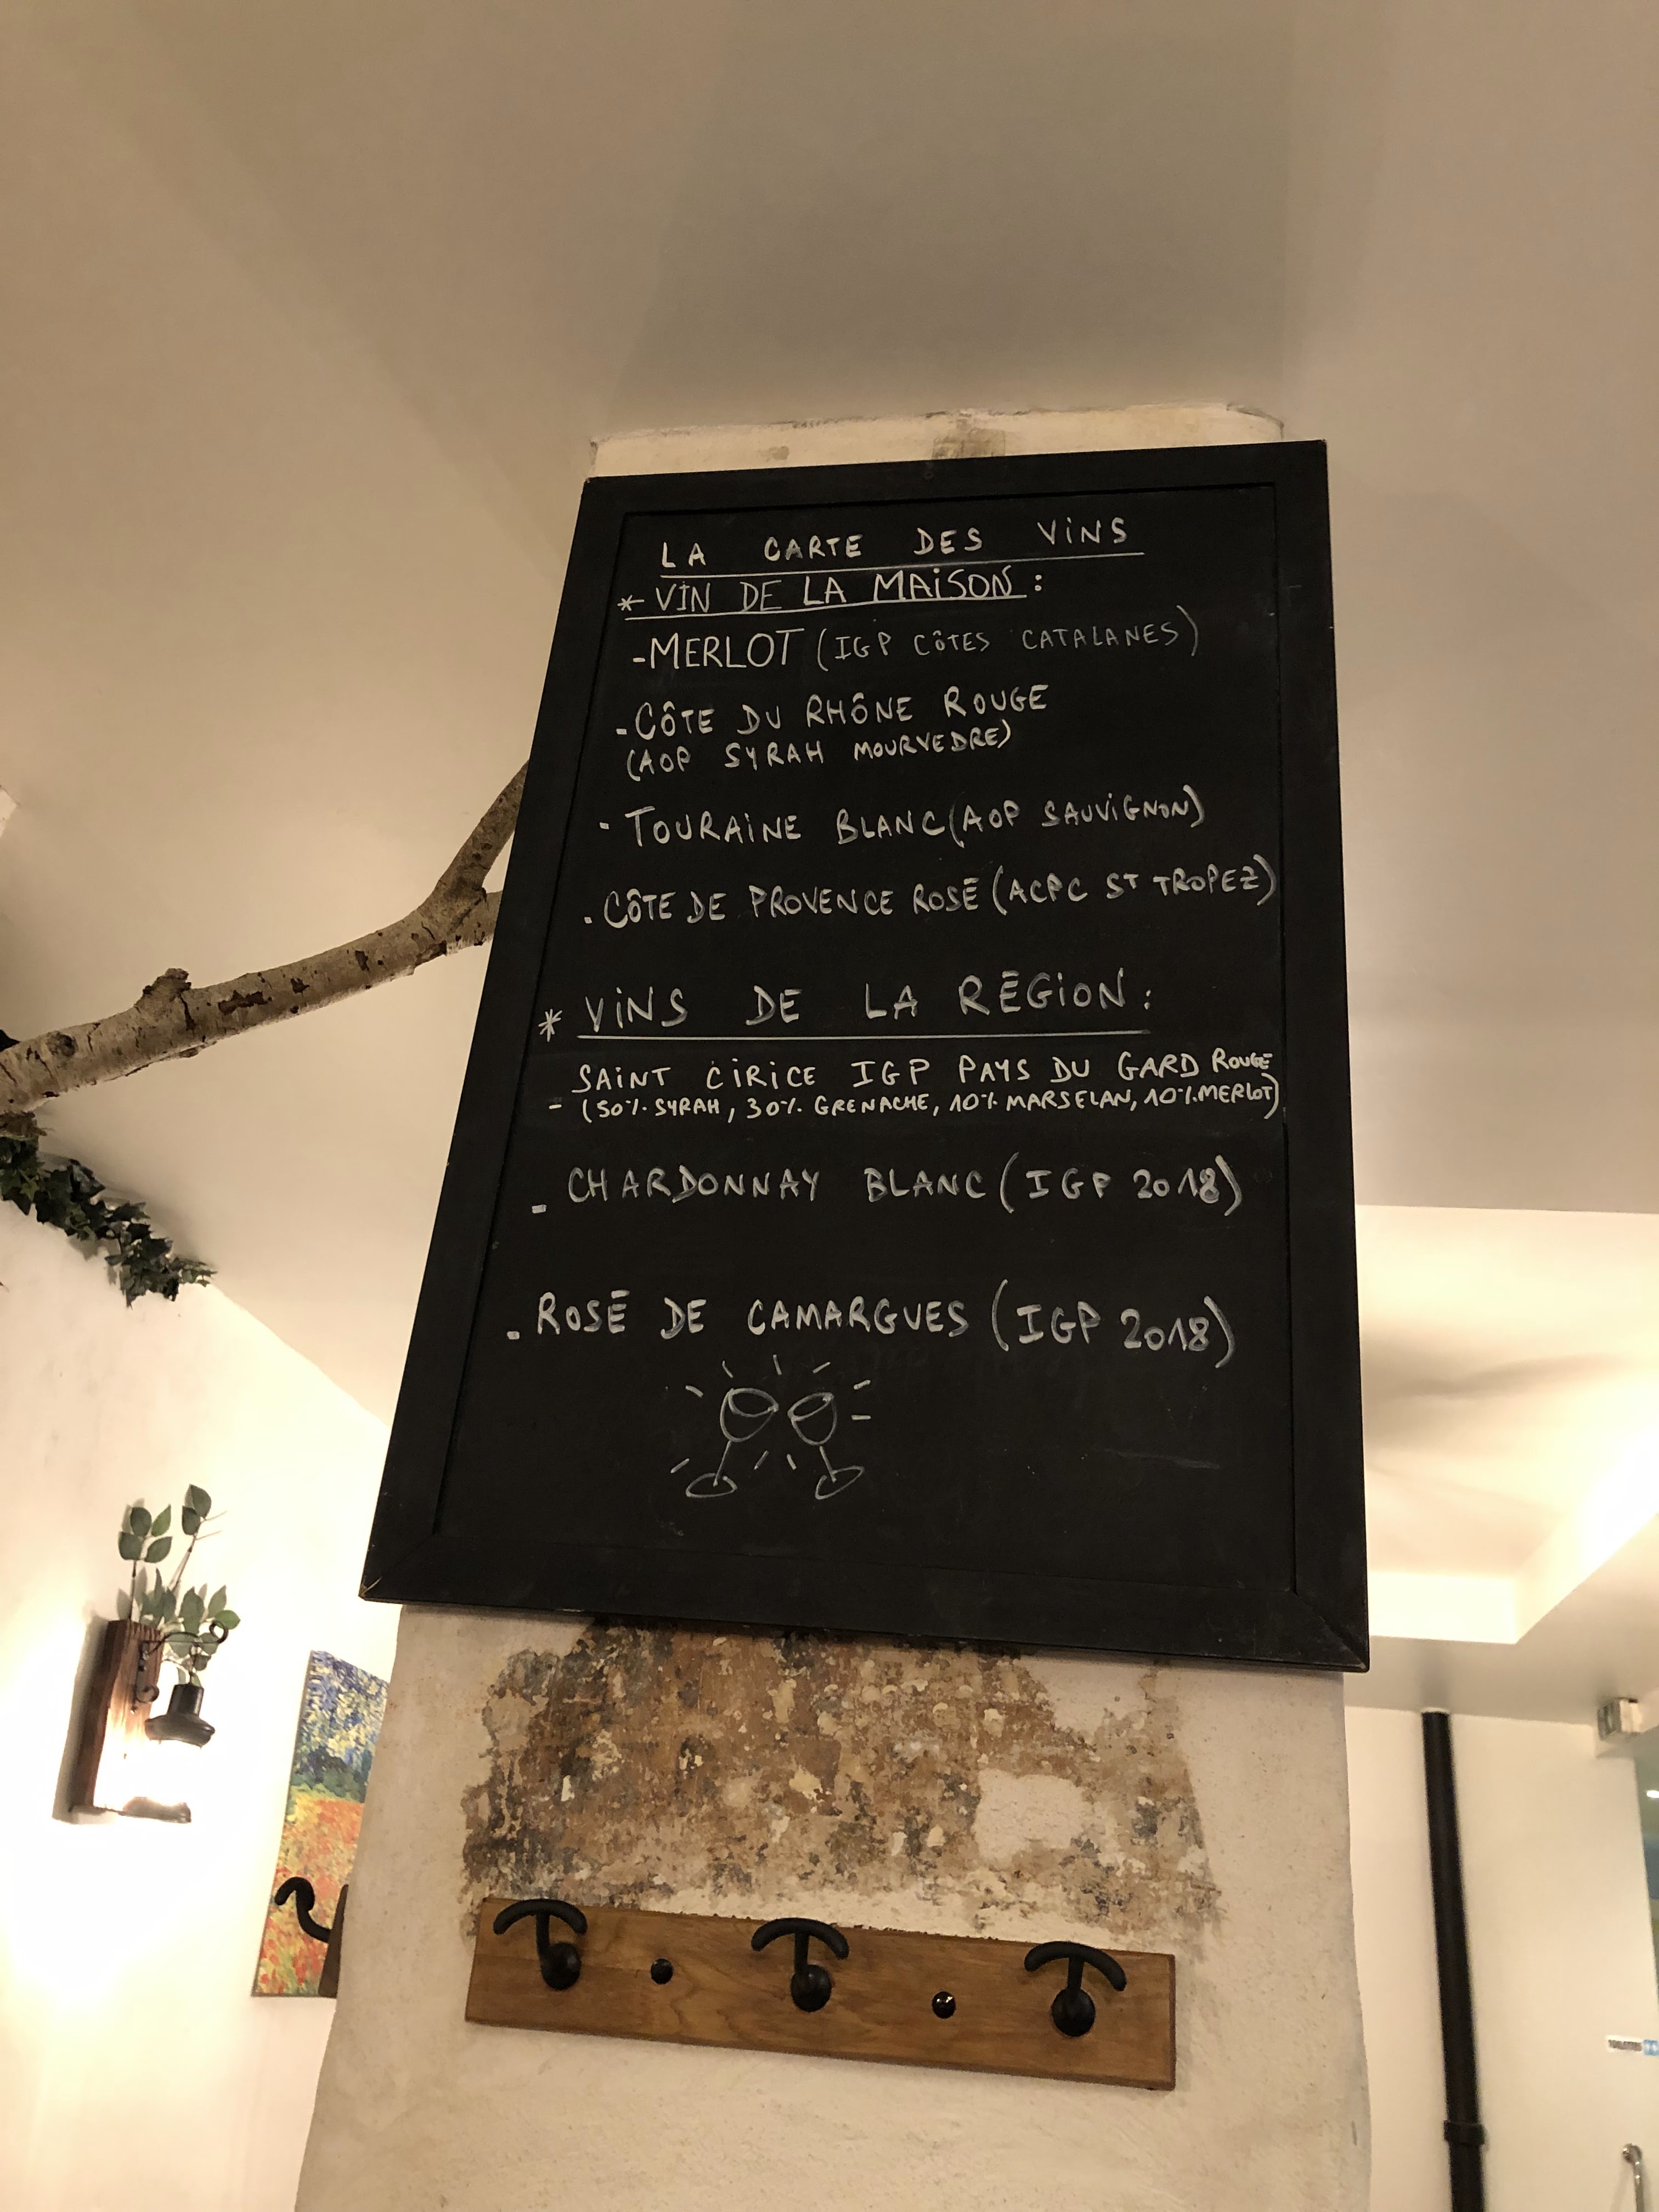 LA CARTE DES ViNS
* VIN DE LA MAiSON :
- MERLOT (IGP CÔTES CATALANES)
- CÔTE DU RHÔNE ROUGE
(AOP SYRAH MOURVEDRE)
- TOURAiNE BLANC (AOP SAUViGNON)
- CÔTE DE PROVENCE ROSÉ (ACPC ST TROPEZ)
* ViNS DE LA RÉGiON :
SAiNT CiRICE IGP PAYS DU GARD ROUGE
- (50% SYRAH, 30% GRENACHE, 10% MARSELAN, 10% MERLOT)
- CHARDONNAY BLANC (IGP 2018)
- ROSÉ DE CAMARGUES (IGP 2018)
TOILETTES